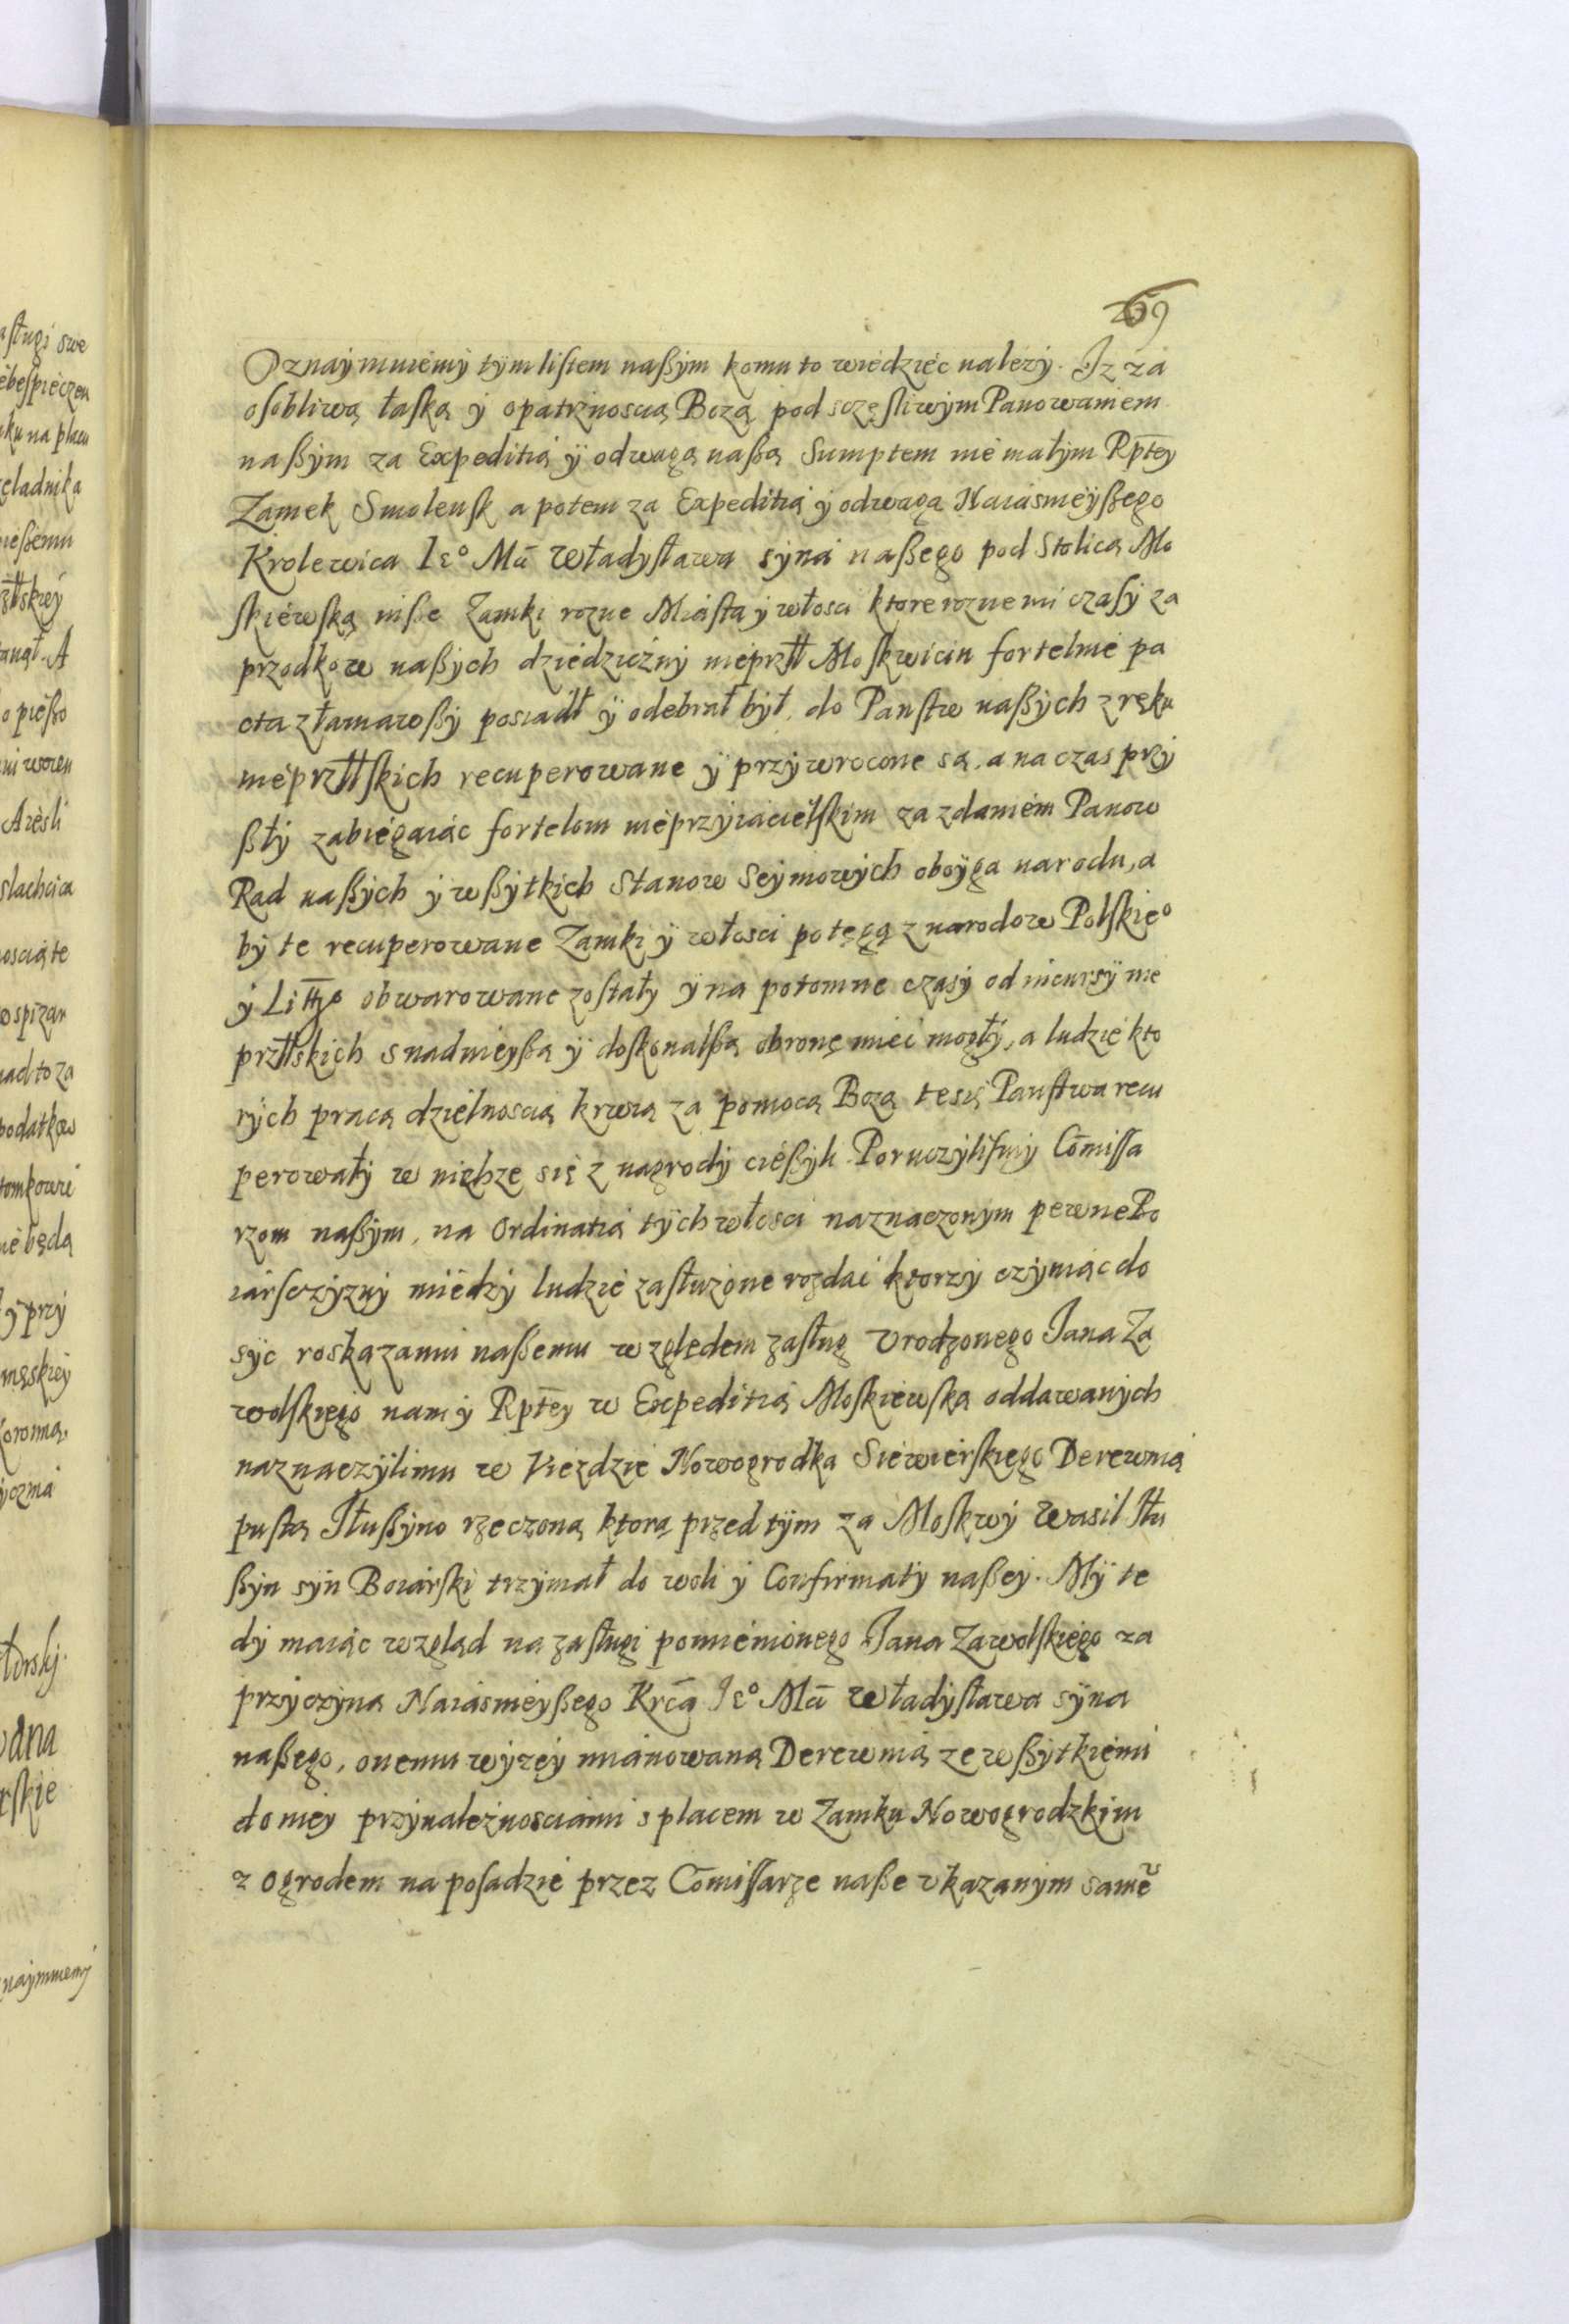 269
Oznaymuiemy tym listem naßym komu to wiedziec nalezy. Iz za
osobliwą łaską y opatrznoscią Bozą pod sczęsliwym Panowaniem
naßym za Expeditią y odwagą naßą Sumptem nie małym Rptey
Zamek Smolensk a potem za Expeditią y odwagą Naiasnieyßego
Krolewica Ieo Mci Władysława syna naßego pod Stolicą Mo
skiewską insße Zamki rozne Miasta y włosci ktore roznemi czasy za
przodkow naßych dziedziczny nieprztl Moskwicin fortelnie pa
cta złamawßy posiadł y odebrał był, do Panstw naßych z ręku
nieprztlskich recuperowane y przywrocone są, a na czas przy
ßły zabiegaiąc fortelom nieprzyiacielskim za zdaniem Panow
Rad naßych y wßytkich Stanow Seymowych oboyga narodu, a
by te recuperowane Zamki y włosci potęgą z narodow Polskieo
y Littgo obwarowane zostały y na potomne czasy od incursy nie
prztlskich snadnieyßą y doskonalßą obronę miec mogły, a ludzie kto
rych pracą dzielnoscią krwią za pomocą Bozą te są Panstwa recu
perowały w nichze się z nagrody cießyli. Poruczylismy Comissa
rzom naßym, na Ordinatią tych włosci naznaczonym pewne Bo
iarsczyzny między ludzie zasłuzone rozdac ktorzy czyniąc do
syc roskazaniu naßemu względem zasług Vrodzonego Iana Za
wolskiego nam y Rptey w Expeditią Moskiewską oddawanych
naznaczylimu w Viezdzie Nowogrodka Siewierskiego Derewnią
pustą Iłußyno rzeczoną ktorą przed tym za Moskwy Wasil Iłu
ßyn syn Boiarski trzymał do woli y Confirmaty naßey. My te
dy maiąc wzgląd na zasługi pomienionego Iana Zawolskiego za
przyczyną Naiasnieyßego Krca Ieo Mci Władysława syna
naßego, onemu wyzey mianowaną Derewnią ze wßytkiemi
do niey przynaleznosciami s placem w Zamku Nowogrodzkim
z ogrodem na posadzie przez Comissarze naße vkazanym samĕ